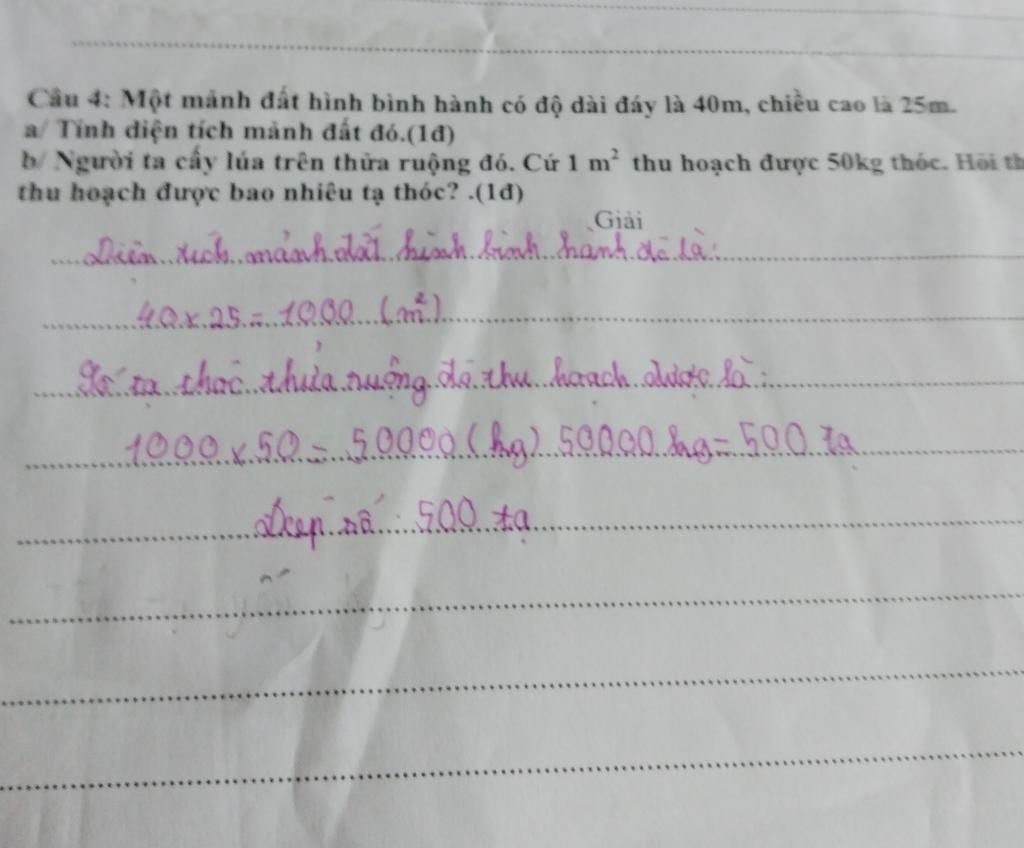 Câu 4: Một mảnh đất hình bình hành có độ dài đáy là 40m, chiều cao là 25m.
a/ Tính diện tích mảnh đất đó.(1đ)
b/ Người ta cấy lúa trên thửa ruộng đó. Cứ 1 m² thu hoạch được 50kg thóc. Hỏi th
thu hoạch được bao nhiêu tạ thóc? .(1đ)
Giải
Diện tích mảnh đất hình bình hành đó là:
40 x 25 = 1000 (m²)
Số tạ thóc thửa ruộng đó thu hoạch được là:
1000 x 50 = 50000 (kg) 50000 kg = 500 tạ
Đáp số: 500 tạ